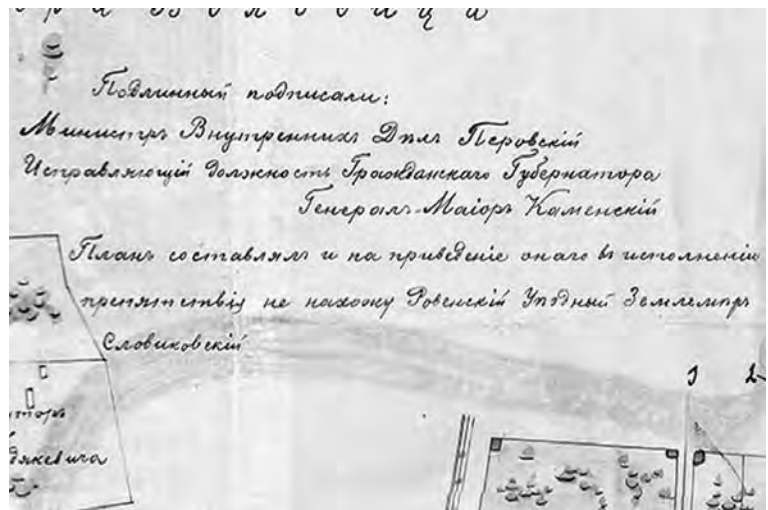 Подлинный подписали:
Министръ Внутреннихъ Дѣлъ Перовскій
Исправляющій должность Гражданскаго Губернатора
Генералъ-Маіоръ Каменскій
Планъ составлялъ и на приведеніе онаго въ исполненіе
препятствія не нахожу Ровенскій Уѣздный Землемѣръ
Словиковскій
1 2